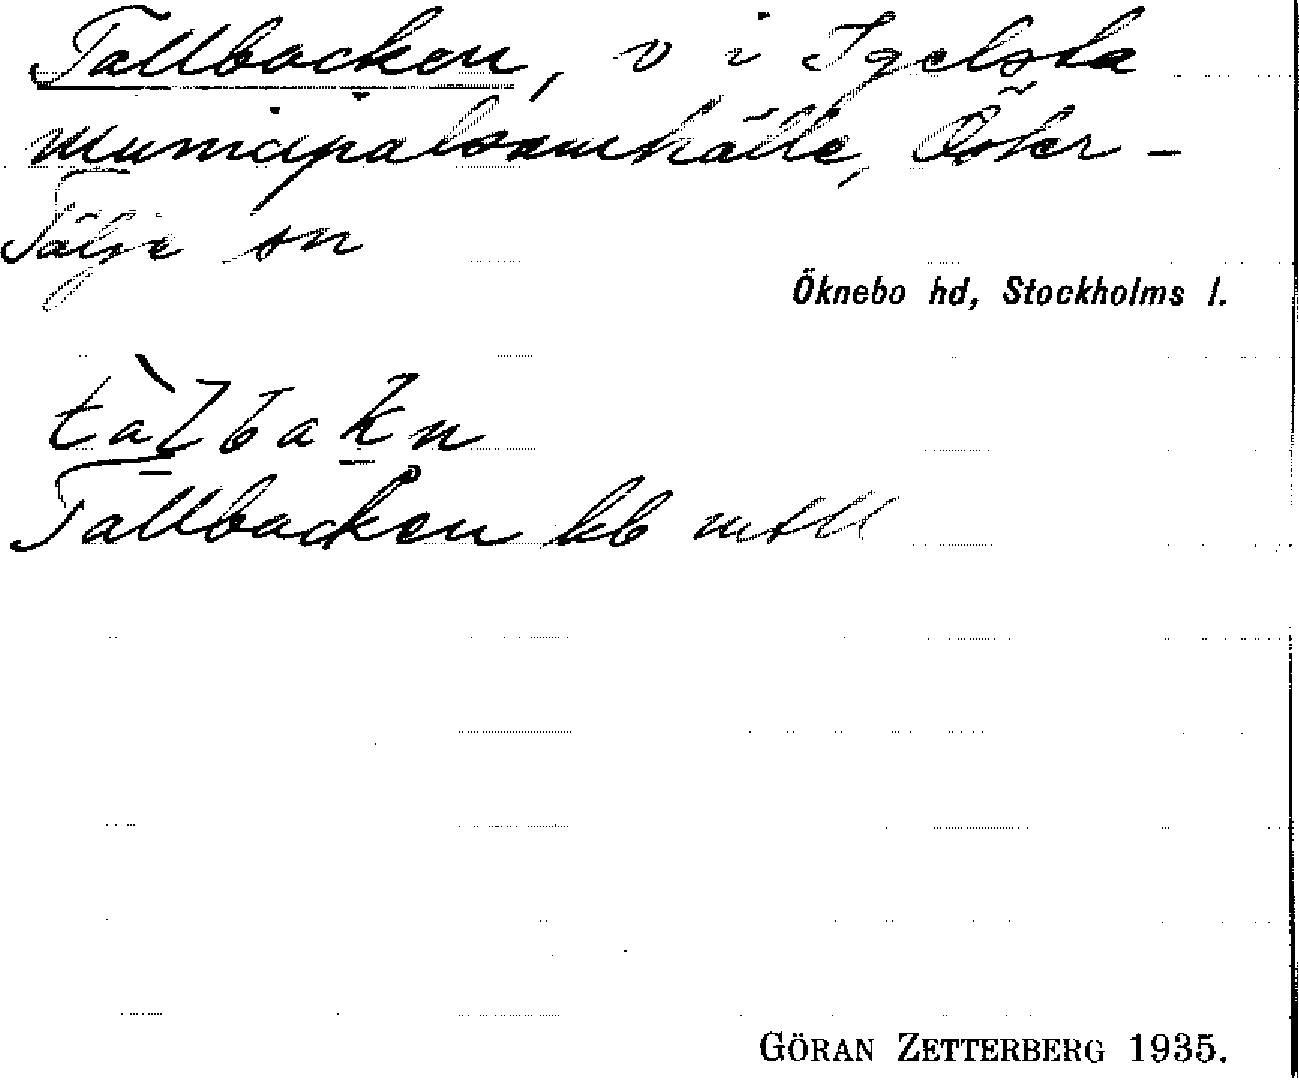 Tallbacken, v i Igelsta
municipalsamhälle, Öster-
Tälje sn
Öknebo hd, Stockholms l.
tàlbakn
Tallbacken kb
GÖRAN ZETTERBERG 1935.